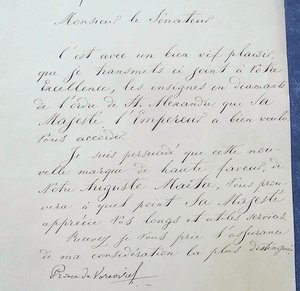 Monsieur le Sénateur
C'est avec un bien vif plaisir,
que je transmets ci joint à Votre
Excellence, les insignes en diamants
de l'ordre de St. Alexandre que Sa
Majesté l'Empereur a bien voulu
vous accorder.
Je suis persuadé que cette nou-
velle marque de haute faveur, de
Notre Auguste Maître, vous prou-
vera à quel point Sa Majesté
apprécie vos longs et utiles services.
Recevez je vous prie l'assurance
de ma considération la plus distinguée